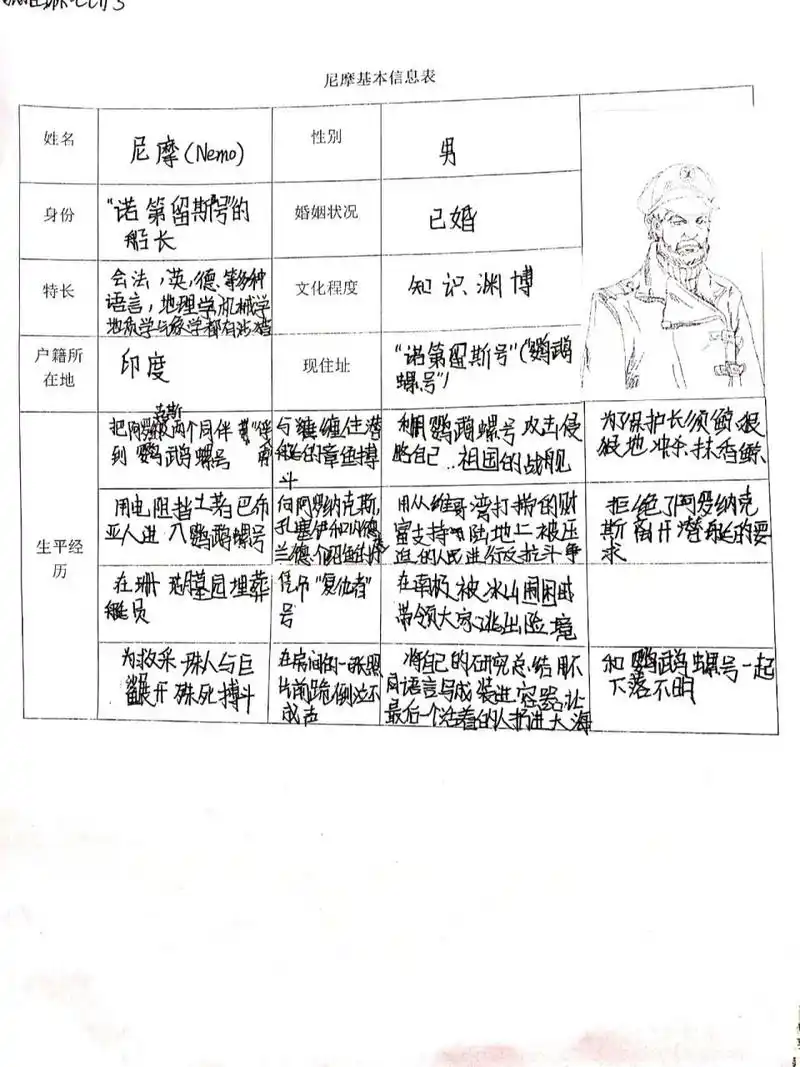 尼摩基本信息表
姓名
尼摩(Nemo)
性别
男
身份
"诺第留斯号"的
船长
婚姻状况
已婚
特长
会法,英,德等多种
语言,地理学,机械学
地质学与象学都有涉猎
文化程度
知识渊博
户籍所
在地
印度
现住址
"诺第留斯号"("鹦鹉
螺号")
生平经
历
克斯
把阿罗纳两个同伴
到鹦鹉螺号
与缠住潜
艇的章鱼搏
斗
利用鹦鹉螺号攻击侵
略自己祖国的战舰
为了保护长须鲸,狠
狠地冲杀抹香鲸
用电阻挡土著巴布
亚人进入鹦鹉螺号
向阿罗纳克斯,
孔塞伊和内德
兰德介绍
用从维哥湾打捞的财
富支持陆地上被压
迫的人民进行反抗斗争
拒绝了阿罗纳克
斯离开潜艇的要
求
在珊瑚墓园埋葬
艇员
凭吊"复仇者"
号
在南极被冰山围困时
带领大家逃出险境
为救采珠人与巨
鲨展开殊死搏斗
在房间的一张照
片前跪倒泣不
成声
将自己的研究总结用不
同语言写成装进容器,让
最后一个活着的人扔进大海
和鹦鹉螺号一起
下落不明